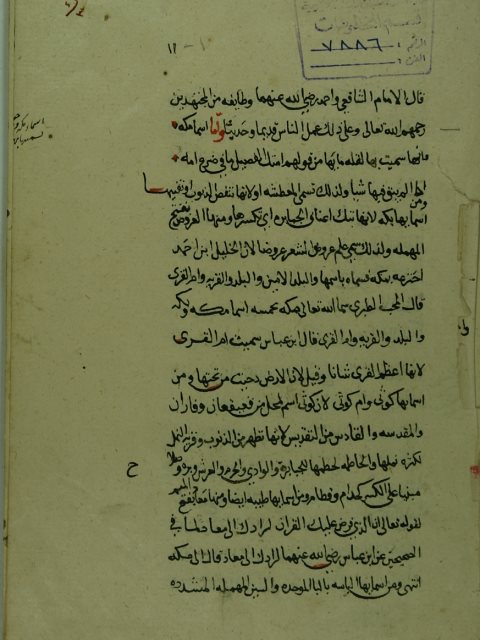 قال الامام الشافعي واحمد رضي الله عنهما وطايفه من المجتهدين
رحمهم الله تعالى وعلى ذلك عمل الناس قديما وحديثا واما اسما مكه
فانها سميت بها لقلة مايها من قولهم امتك الفصيل ما في ضرع امه
اذا لم يبق فيها شيا ولذلك تسمى المعطشه او لانها تنقص الذنوب او تفنيها
ومن اسمايها بكه لانها تبك اعناق الجبابره اي تكسرها ومنها العروض بفتح
المهمله ولذلك سمي علم عروض الشعر عروضا لان الخليل ابن احمد
اخترعه بمكه فسماه باسمها والبلد الامين والبلد والقريه وام القرى
قال المحب الطبري سما الله تعالى مكه بخمسه اسما مكه وبكه
والبلد والقريه وام القرى قال ابن عباس سميت ام القرى
لانها اعظم القرى شانا وقيل لان الارض دحيت من تحتها ومن
اسمايها كوثى وام كوثى لان كوثى اسم لمحل من قعيقعان وفاران
والمقدسه والقادس من التقديس لانها تطهر من الذنوب وقرية النمل
لكثرة نملها والحاطمه لحطمها للجبابره والوادي والحرم والعرش وبره وصلاح
مبنيا على الكسر كحذام وقطام ومن اسمايها طيبه ايضا ومنها معاد بفتح الميم
لقوله تعالى ان الذي فرض عليك القران لرادك الى معاد لما في
الصحيحين عن ابن عباس رضي الله عنهما لرادك الى معاد قال الى مكه
انتهى ومن اسمايها الباسه بالبا الموحده والسين المهمله المشدده
ح
٧٨٨٦